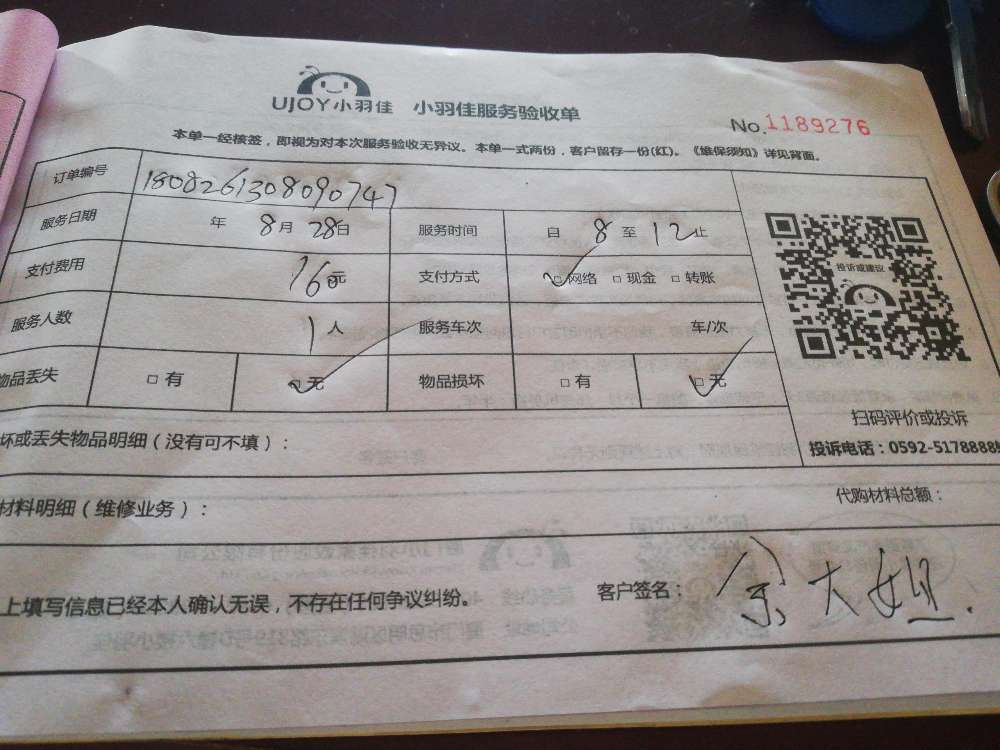 UJOY小羽佳 小羽佳服务验收单
No.1189276
本单一经接签，即视为对本次服务验收无异议。本单一式两份，客户留存一份(红)。《维保须知》详见背面。
订单编号 180826130809​0747
服务日期 年 8月 28日 服务时间 自 8 至 12止
支付费用 76元 支付方式 □网络 □现金 □转账
服务人数 1人 服务车次 车/次
物品丢失 □有 □无 物品损坏 □有 □无
投诉或建议
扫码评价或投诉
坏或丢失物品明细（没有可不填）：
投诉电话：0592-5178888
材料明细（维修业务）： 代购材料总额：
上填写信息已经本人确认无误，不存在任何争议纠纷。 客户签名：余大姐.